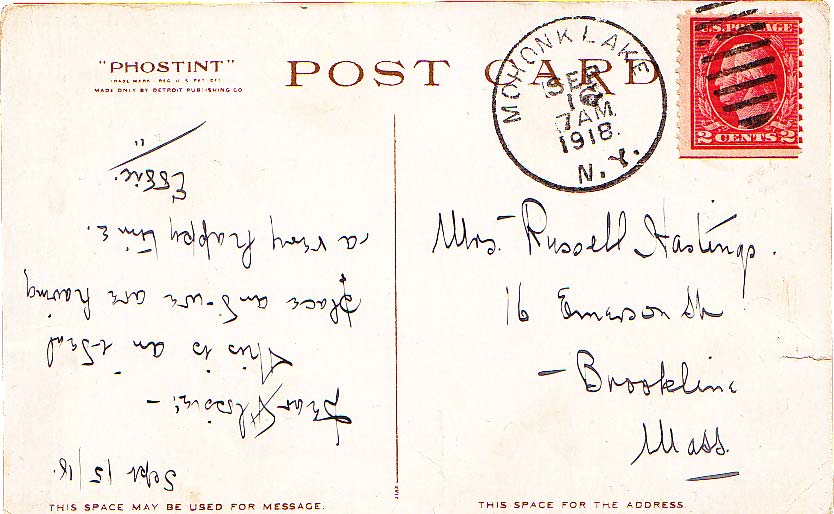 "PHOSTINT"
TRADE MARK REG. U.S. PAT. OFF.
MADE ONLY BY DETROIT PUBLISHING CO
POST CARD
MOHONK LAKE
SEP
7 AM
1918.
N.Y.
U.S. POSTAGE
2 CENTS 2
Sept 15/18.
Dear
This is an ideal
place and we are having
a very happy time.
Essie.
Mrs. Russell Hastings.
16 Emerson St
- Brookline
Mass.
THIS SPACE MAY BE USED FOR MESSAGE.
THIS SPACE FOR THE ADDRESS.